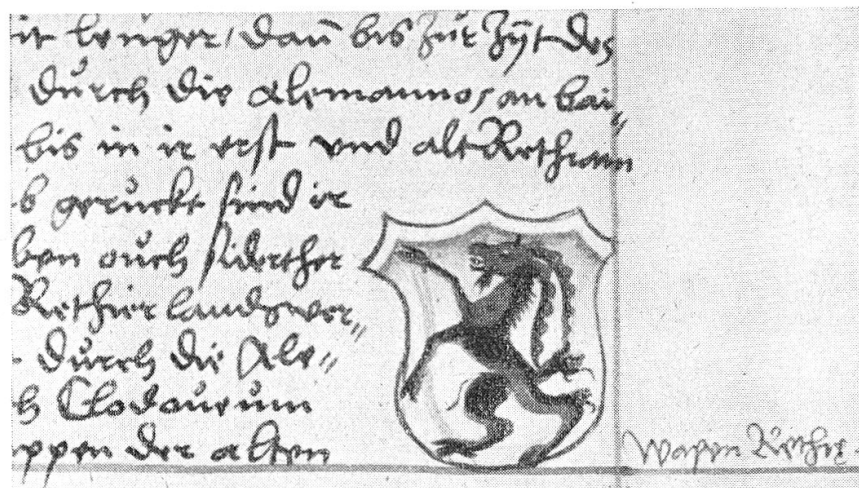 it lenger, dañ bis zur Zyt des
durch die Alemannos, an bai„
bis in ir erst und alt Rethiam
b geruckt sind ir
ben ouch siderther
Rethier landswer„
durch die Ale„
ch Clodoueum
ppen der alten
Wapen Rethie.